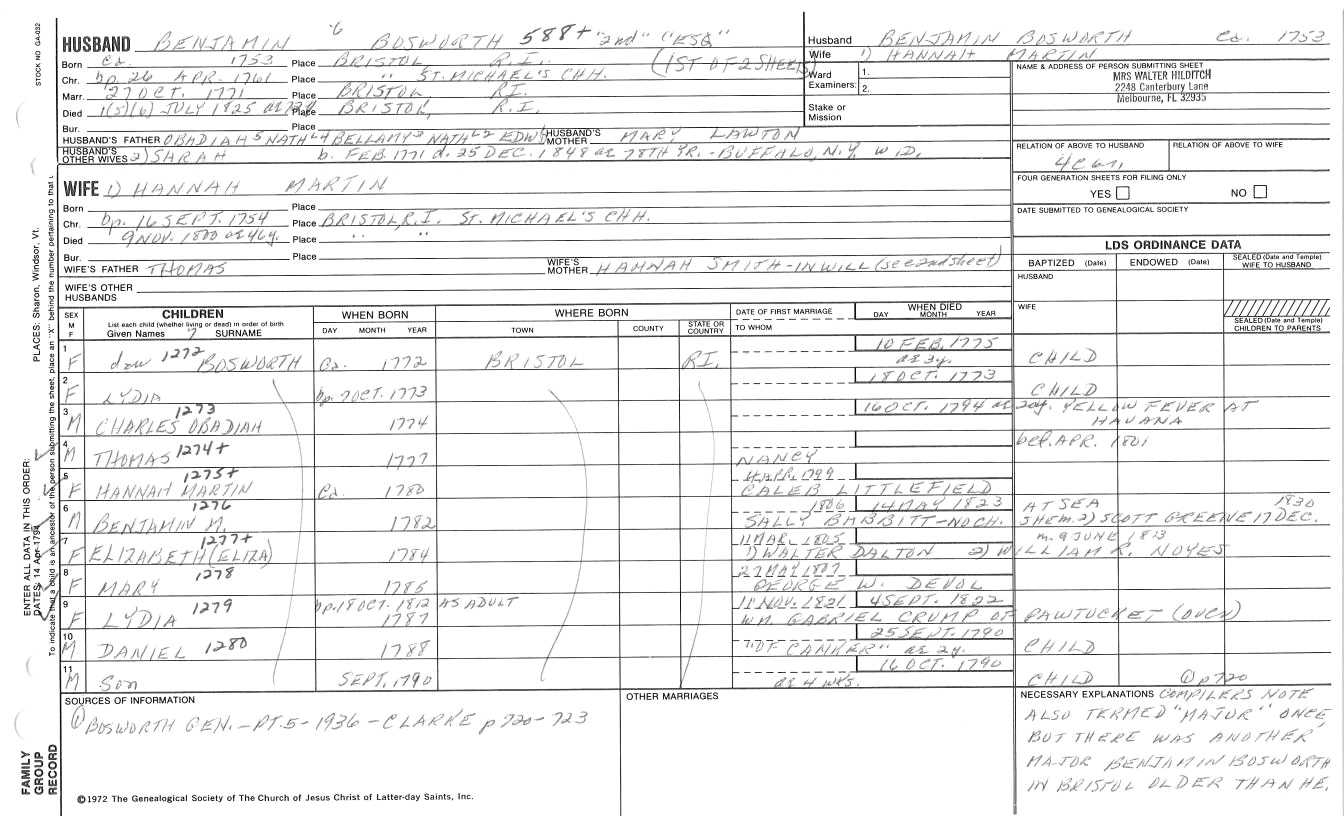 STOCK NO GA-032
PLACES: Sharon, Windsor, Vt.
ENTER ALL DATA IN THIS ORDER:
DATES: 14 Apr 1794
To indicate that a child is an ancestor of the person submitting the sheet, place an "X" behind the number pertaining to that
FAMILY
GROUP
RECORD
6
HUSBAND BENJAMIN BOSWORTH 588+ "2nd" "ESQ"
Born Ca. 1753 Place BRISTOL R.I. (1ST OF 2 SHEETS)
Chr. bp. 26 APR. 1761 Place " ST. MICHAEL'S CHH.
Marr. 27 OCT. 1771 Place BRISTOL RI.
Died 1(5)(6) JULY 1825 Place BRISTOL, R.I.
Bur. Place
HUSBAND'S FATHER OBADIAH 5 NATHL 4 BELLAMY 3 NATHL 2 EDW 1 HUSBAND'S MOTHER MARY LAWTON
HUSBAND'S OTHER WIVES 2) SARAH b. FEB. 1771 d. 25 DEC. 1848 ae 78TH YR. - BUFFALO, N.Y. WID.
WIFE 1) HANNAH MARTIN
Born Place
Chr. bp. 16 SEPT. 1754 Place BRISTOL, R.I. ST. MICHAEL'S CHH.
Died 9 NOV. 1800 ae 46y. Place " "
Bur. Place
WIFE'S FATHER THOMAS WIFE'S MOTHER HANNAH SMITH - IN WILL (see 2nd sheet)
WIFE'S OTHER HUSBANDS
Husband BENJAMIN BOSWORTH Ca. 1753
Wife 1) HANNAH MARTIN
Ward Examiners: 1.
2.
Stake or Mission
NAME & ADDRESS OF PERSON SUBMITTING SHEET
MRS WALTER HILDITCH
2248 Canterbury Lane
Melbourne, FL 32935
RELATION OF ABOVE TO HUSBAND RELATION OF ABOVE TO WIFE
FOUR GENERATION SHEETS FOR FILING ONLY
YES NO
DATE SUBMITTED TO GENEALOGICAL SOCIETY
LDS ORDINANCE DATA
BAPTIZED (Date) ENDOWED (Date) SEALED (Date and Temple) WIFE TO HUSBAND
HUSBAND
WIFE
SEALED (Date and Temple) CHILDREN TO PARENTS
SEX M F CHILDREN List each child (whether living or dead) in order of birth Given Names 7 SURNAME
WHEN BORN DAY MONTH YEAR
WHERE BORN TOWN COUNTY STATE OR COUNTRY
DATE OF FIRST MARRIAGE TO WHOM
WHEN DIED DAY MONTH YEAR
1 F dau 1272 BOSWORTH Ca. 1772 BRISTOL RI. 10 FEB. 1775 ae 3y. CHILD
2 F LYDIA bp. 7 OCT. 1773 18 OCT. 1773 CHILD
3 M CHARLES OBADIAH 1273 1774 16 OCT. 1794 ae 20y. YELLOW FEVER AT HAVANA
4 M THOMAS 1274+ 1777 NANCY bef. APR. 1801
5 F HANNAH MARTIN 1275+ Ca. 1780 4 APR. 1799 CALEB LITTLEFIELD
6 M BENJAMIN M. 1276 1782 1806 14 MAY 1823 AT SEA 1830
SALLY BABBITT - NO CH. SHE m. 2) SCOTT GREENE 17 DEC.
7 F ELIZABETH (ELIZA) 1277+ 1784 11 MAR. 1805 m. 9 JUNE 1813
1) WALTER DALTON 2) WILLIAM R. NOYES
8 F MARY 1278 1785 27 MAY 1807 GEORGE W. DEVOL
9 F LYDIA 1279 bp. 18 OCT. 1812 AS ADULT 1787 11 NOV. 1821 4 SEPT. 1822
WM. GABRIEL CRUMP OF PAWTUCKET
10 M DANIEL 1280 1788 25 SEPT. 1790 "OF CANKER" ae 2y. CHILD
11 M Son SEPT. 1790 16 OCT. 1790 ae 4 wks. CHILD ① p720
SOURCES OF INFORMATION
① BOSWORTH GEN. - PT. 5 - 1936 - CLARKE p 720-723
OTHER MARRIAGES
NECESSARY EXPLANATIONS COMPILERS NOTE
ALSO TERMED "MAJOR" ONCE,
BUT THERE WAS ANOTHER
MAJOR BENJAMIN BOSWORTH
IN BRISTOL OLDER THAN HE.
©1972 The Genealogical Society of The Church of Jesus Christ of Latter-day Saints, Inc.